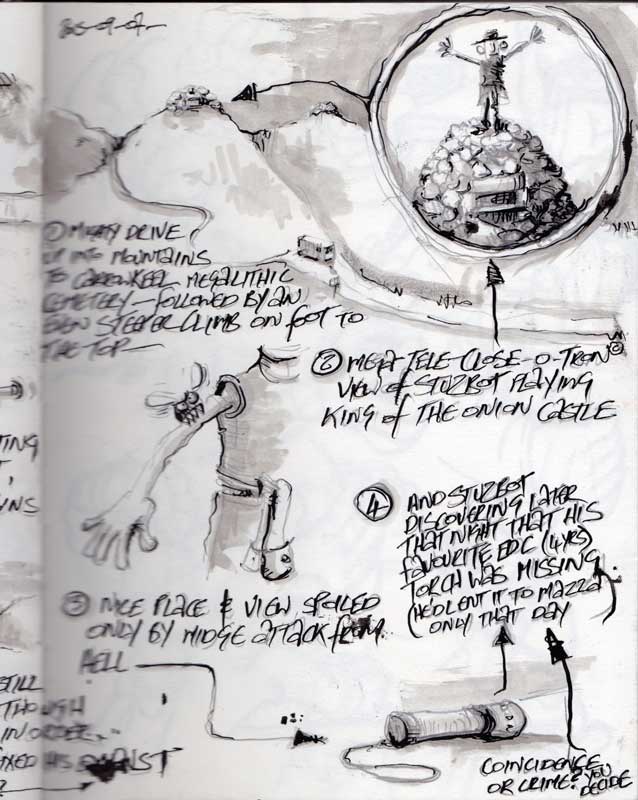 ① MIGHTY DRIVE
UP INTO MOUNTAINS
TO CARROWKEEL MEGALITHIC
CEMETERY – FOLLOWED BY AN
EVEN STEEPER CLIMB ON FOOT TO
THE TOP –
② MEGA-TELE-CLOSE-O-TRON
VIEW OF STUZBOT PLAYING
KING OF THE ONION CASTLE
③ NICE PLACE & VIEW SPOILED
ONLY BY MIDGE ATTACK FROM
HELL
④ AND STUZBOT
DISCOVERING LATER
THAT NIGHT THAT HIS
FAVOURITE EDC (4YRS)
TORCH WAS MISSING
(HE'D LENT IT TO MAZZA
ONLY THAT DAY
COINCIDENCE
OR CRIME? YOU
DECIDE
TING
UNS
STILL
THOUGH
IN ORDER
FIXED HIS EXHAUST
?